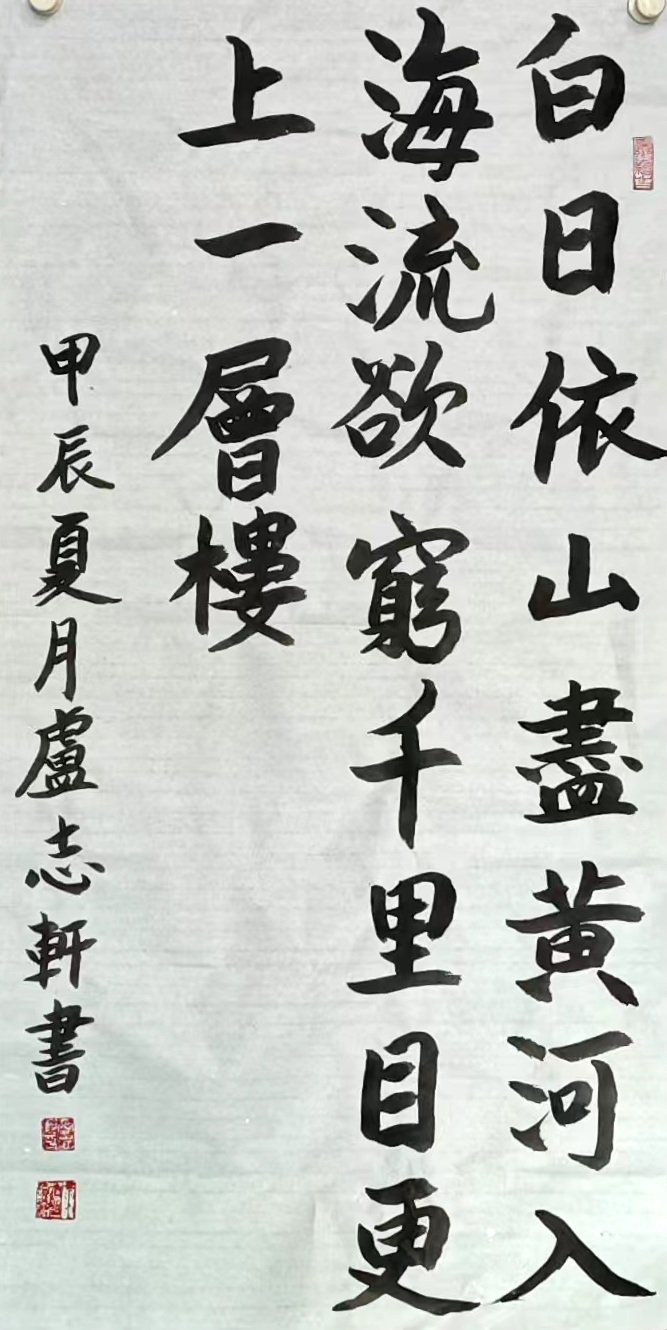 白日依山盡黄河入
海流欲窮千里目更
上一層樓
甲辰夏月盧志軒書